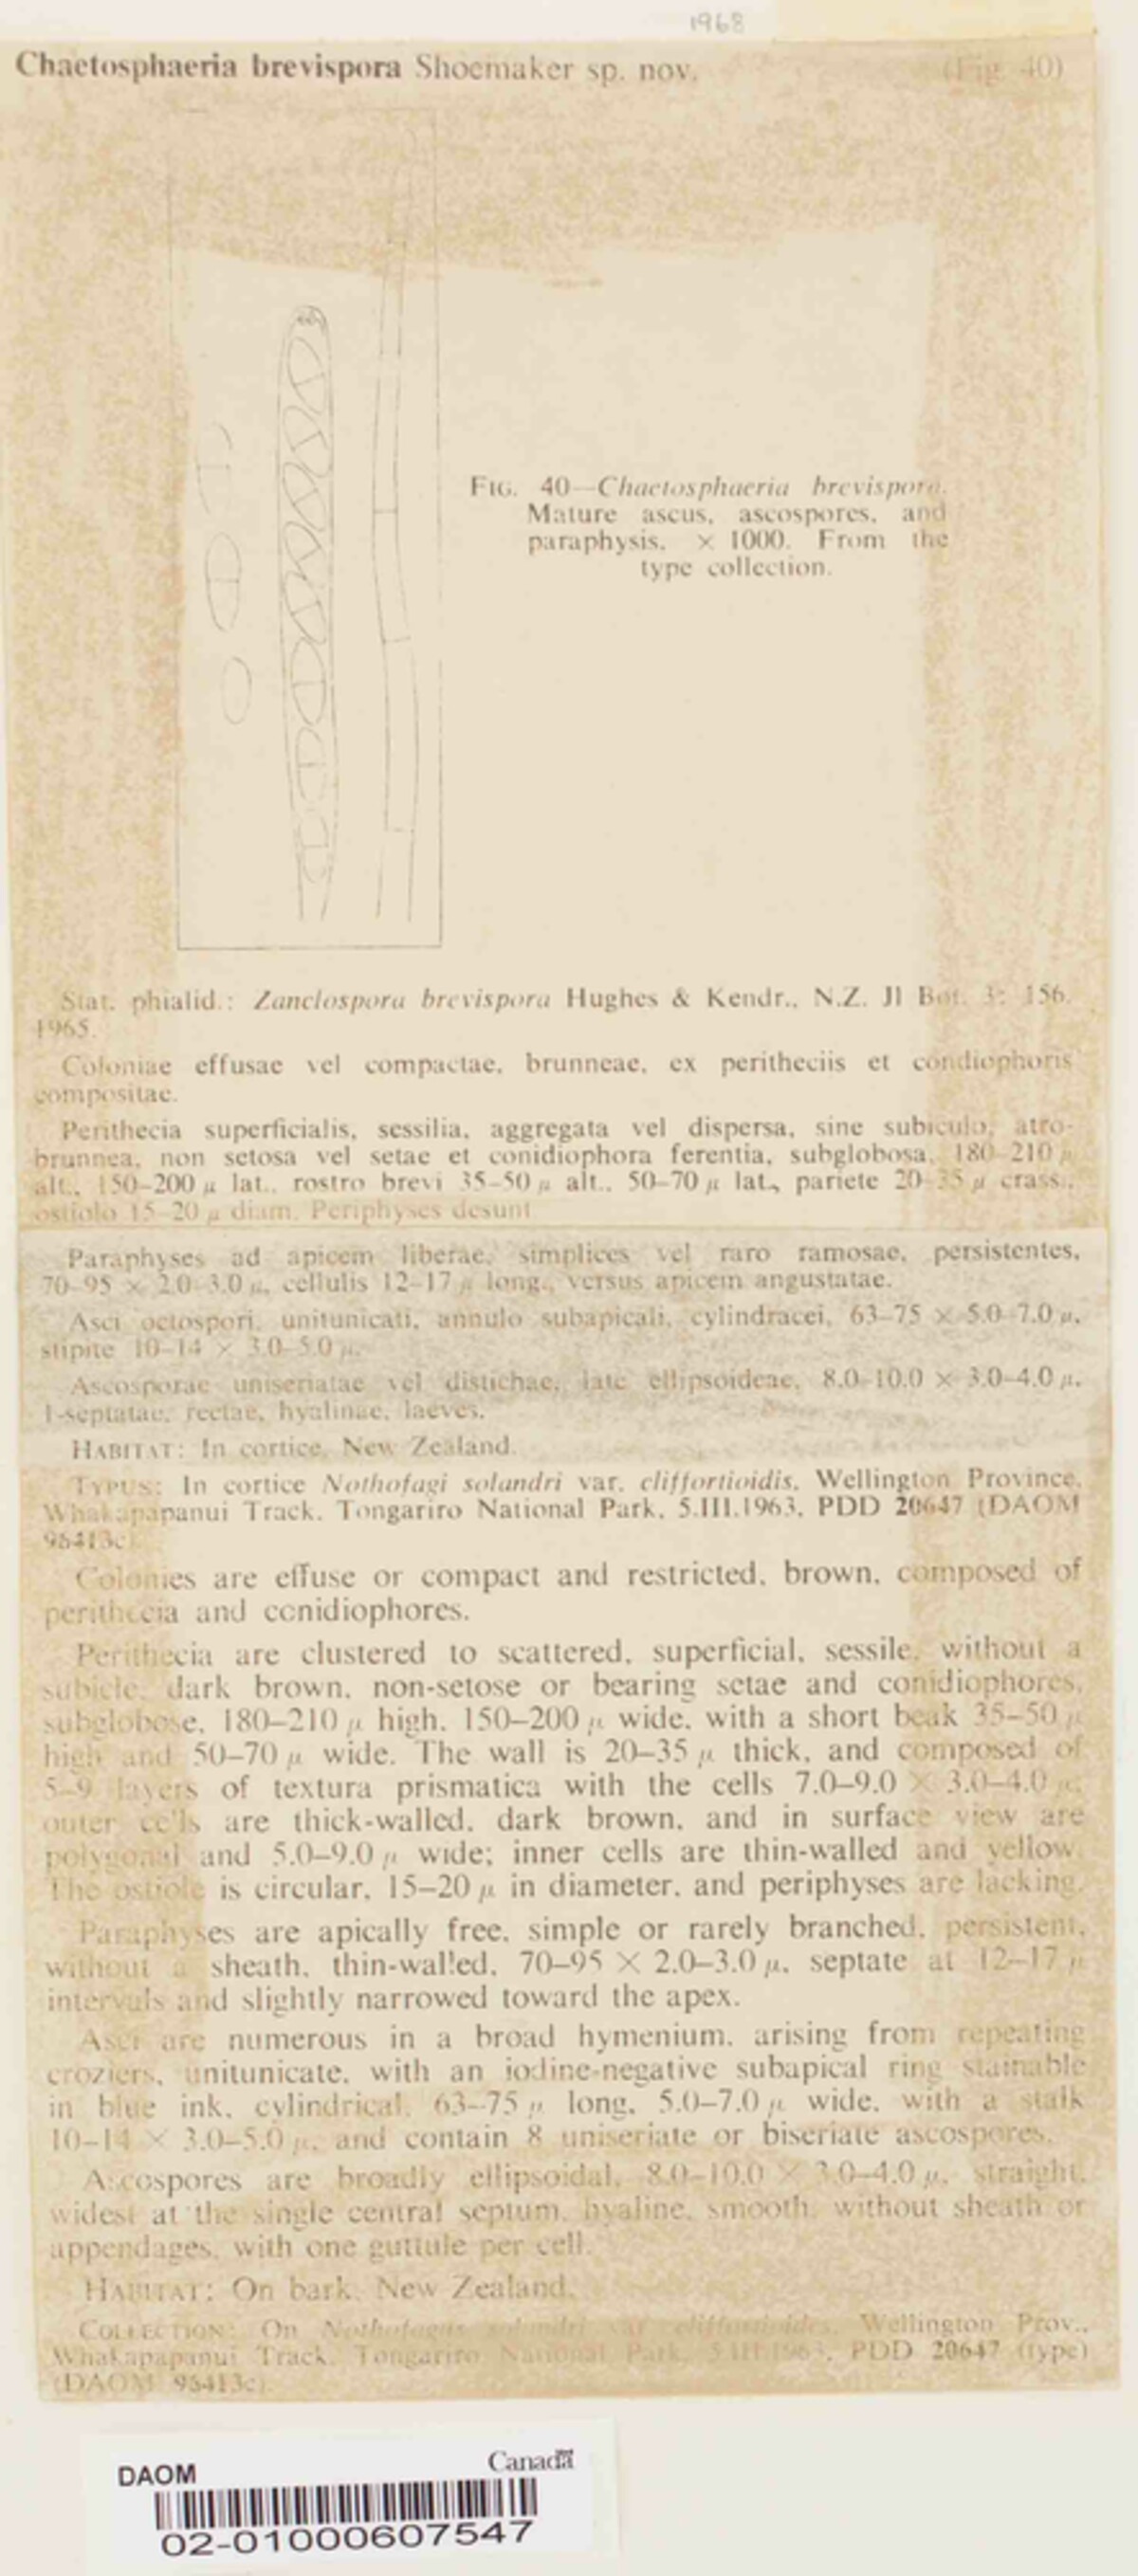 1968
Chaetosphaeria brevispora Shoemaker sp. nov. (Fig. 40)
FIG. 40—Chaetosphaeria brevispora.
Mature ascus, ascospores, and
paraphysis, × 1000. From the
type collection.
Stat. phialid.: Zanclospora brevispora Hughes & Kendr., N.Z. Jl Bot. 3: 156.
1965.
Coloniae effusae vel compactae, brunneae, ex peritheciis et condiophoris
compositae.
Perithecia superficialis, sessilia, aggregata vel dispersa, sine subiculo, atro-
brunnea, non setosa vel setae et conidiophora ferentia, subglobosa, 180–210 µ
alt., 150–200 µ lat., rostro brevi 35–50 µ alt., 50–70 µ lat., pariete 20–35 µ crass.,
ostiolo 15–20 µ diam. Periphyses desunt.
Paraphyses ad apicem liberae, simplices vel raro ramosae, persistentes,
70–95 × 2.0–3.0 µ, cellulis 12–17 µ long., versus apicem angustatae.
Asci octospori, unitunicati, annulo subapicali, cylindracei, 63–75 × 5.0–7.0 µ,
stipite 10–14 × 3.0–5.0 µ.
Ascosporae uniseriatae vel distichae, late ellipsoideae, 8.0–10.0 × 3.0–4.0 µ,
1-septatae, rectae, hyalinae, laeves.
HABITAT: In cortice, New Zealand.
TYPUS: In cortice Nothofagi solandri var. cliffortioidis, Wellington Province,
Whakapapanui Track, Tongariro National Park, 5.III.1963, PDD 20647 (DAOM
96413c).
Colonies are effuse or compact and restricted, brown, composed of
perithecia and conidiophores.
Perithecia are clustered to scattered, superficial, sessile, without a
subicle, dark brown, non-setose or bearing setae and conidiophores,
subglobose, 180–210 µ high, 150–200 µ wide, with a short beak 35–50 µ
high and 50–70 µ wide. The wall is 20–35 µ thick, and composed of
5–9 layers of textura prismatica with the cells 7.0–9.0 × 3.0–4.0 µ;
outer cells are thick-walled, dark brown, and in surface view are
polygonal and 5.0–9.0 µ wide; inner cells are thin-walled and yellow.
The ostiole is circular, 15–20 µ in diameter, and periphyses are lacking.
Paraphyses are apically free, simple or rarely branched, persistent,
without a sheath, thin-walled, 70–95 × 2.0–3.0 µ, septate at 12–17 µ
intervals and slightly narrowed toward the apex.
Asci are numerous in a broad hymenium, arising from repeating
croziers, unitunicate, with an iodine-negative subapical ring stainable
in blue ink, cylindrical, 63–75 µ long, 5.0–7.0 µ wide, with a stalk
10–14 × 3.0–5.0 µ, and contain 8 uniseriate or biseriate ascospores.
Ascospores are broadly ellipsoidal, 8.0–10.0 × 3.0–4.0 µ, straight,
widest at the single central septum, hyaline, smooth, without sheath or
appendages, with one guttule per cell.
HABITAT: On bark, New Zealand.
COLLECTION: On Nothofagus solandri var. cliffortioides, Wellington Prov.,
Whakapapanui Track, Tongariro National Park, 5.III.1963, PDD 20647 (type)
(DAOM 96413c).
DAOM Canada
02-01000607547